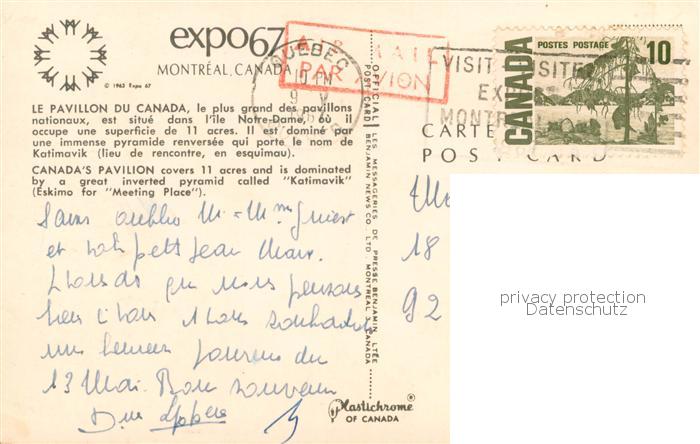 expo67
MONTRÉAL, CANADA
© 1963 Expo 67
QUEBEC
10 PM
AIR MAIL
PAR AVION
VISIT VISITE
EXP
MONTR
POSTES POSTAGE
10
CANADA
CARTE
POST CARD
LE PAVILLON DU CANADA, le plus grand des pavillons
nationaux, est situé dans l'île Notre-Dame, où il
occupe une superficie de 11 acres. Il est dominé par
une immense pyramide renversée qui porte le nom de
Katimavik (lieu de rencontre, en esquimau).
CANADA'S PAVILION covers 11 acres and is dominated
by a great inverted pyramid called "Katimavik"
(Eskimo for "Meeting Place").
Sans oublier M. M me
et petit Jean Marc.
que nous pensons
souhaitons
une bonne journée du
13 Mai. Bon souvenir
18
92
OFFICIAL LES MESSAGERIES DE PRESSE BENJAMIN LTÉE
POST CARD BENJAMIN NEWS CO. LTD. MONTREAL 3, CANADA
Plastichrome ®
OF CANADA
privacy protection
Datenschutz